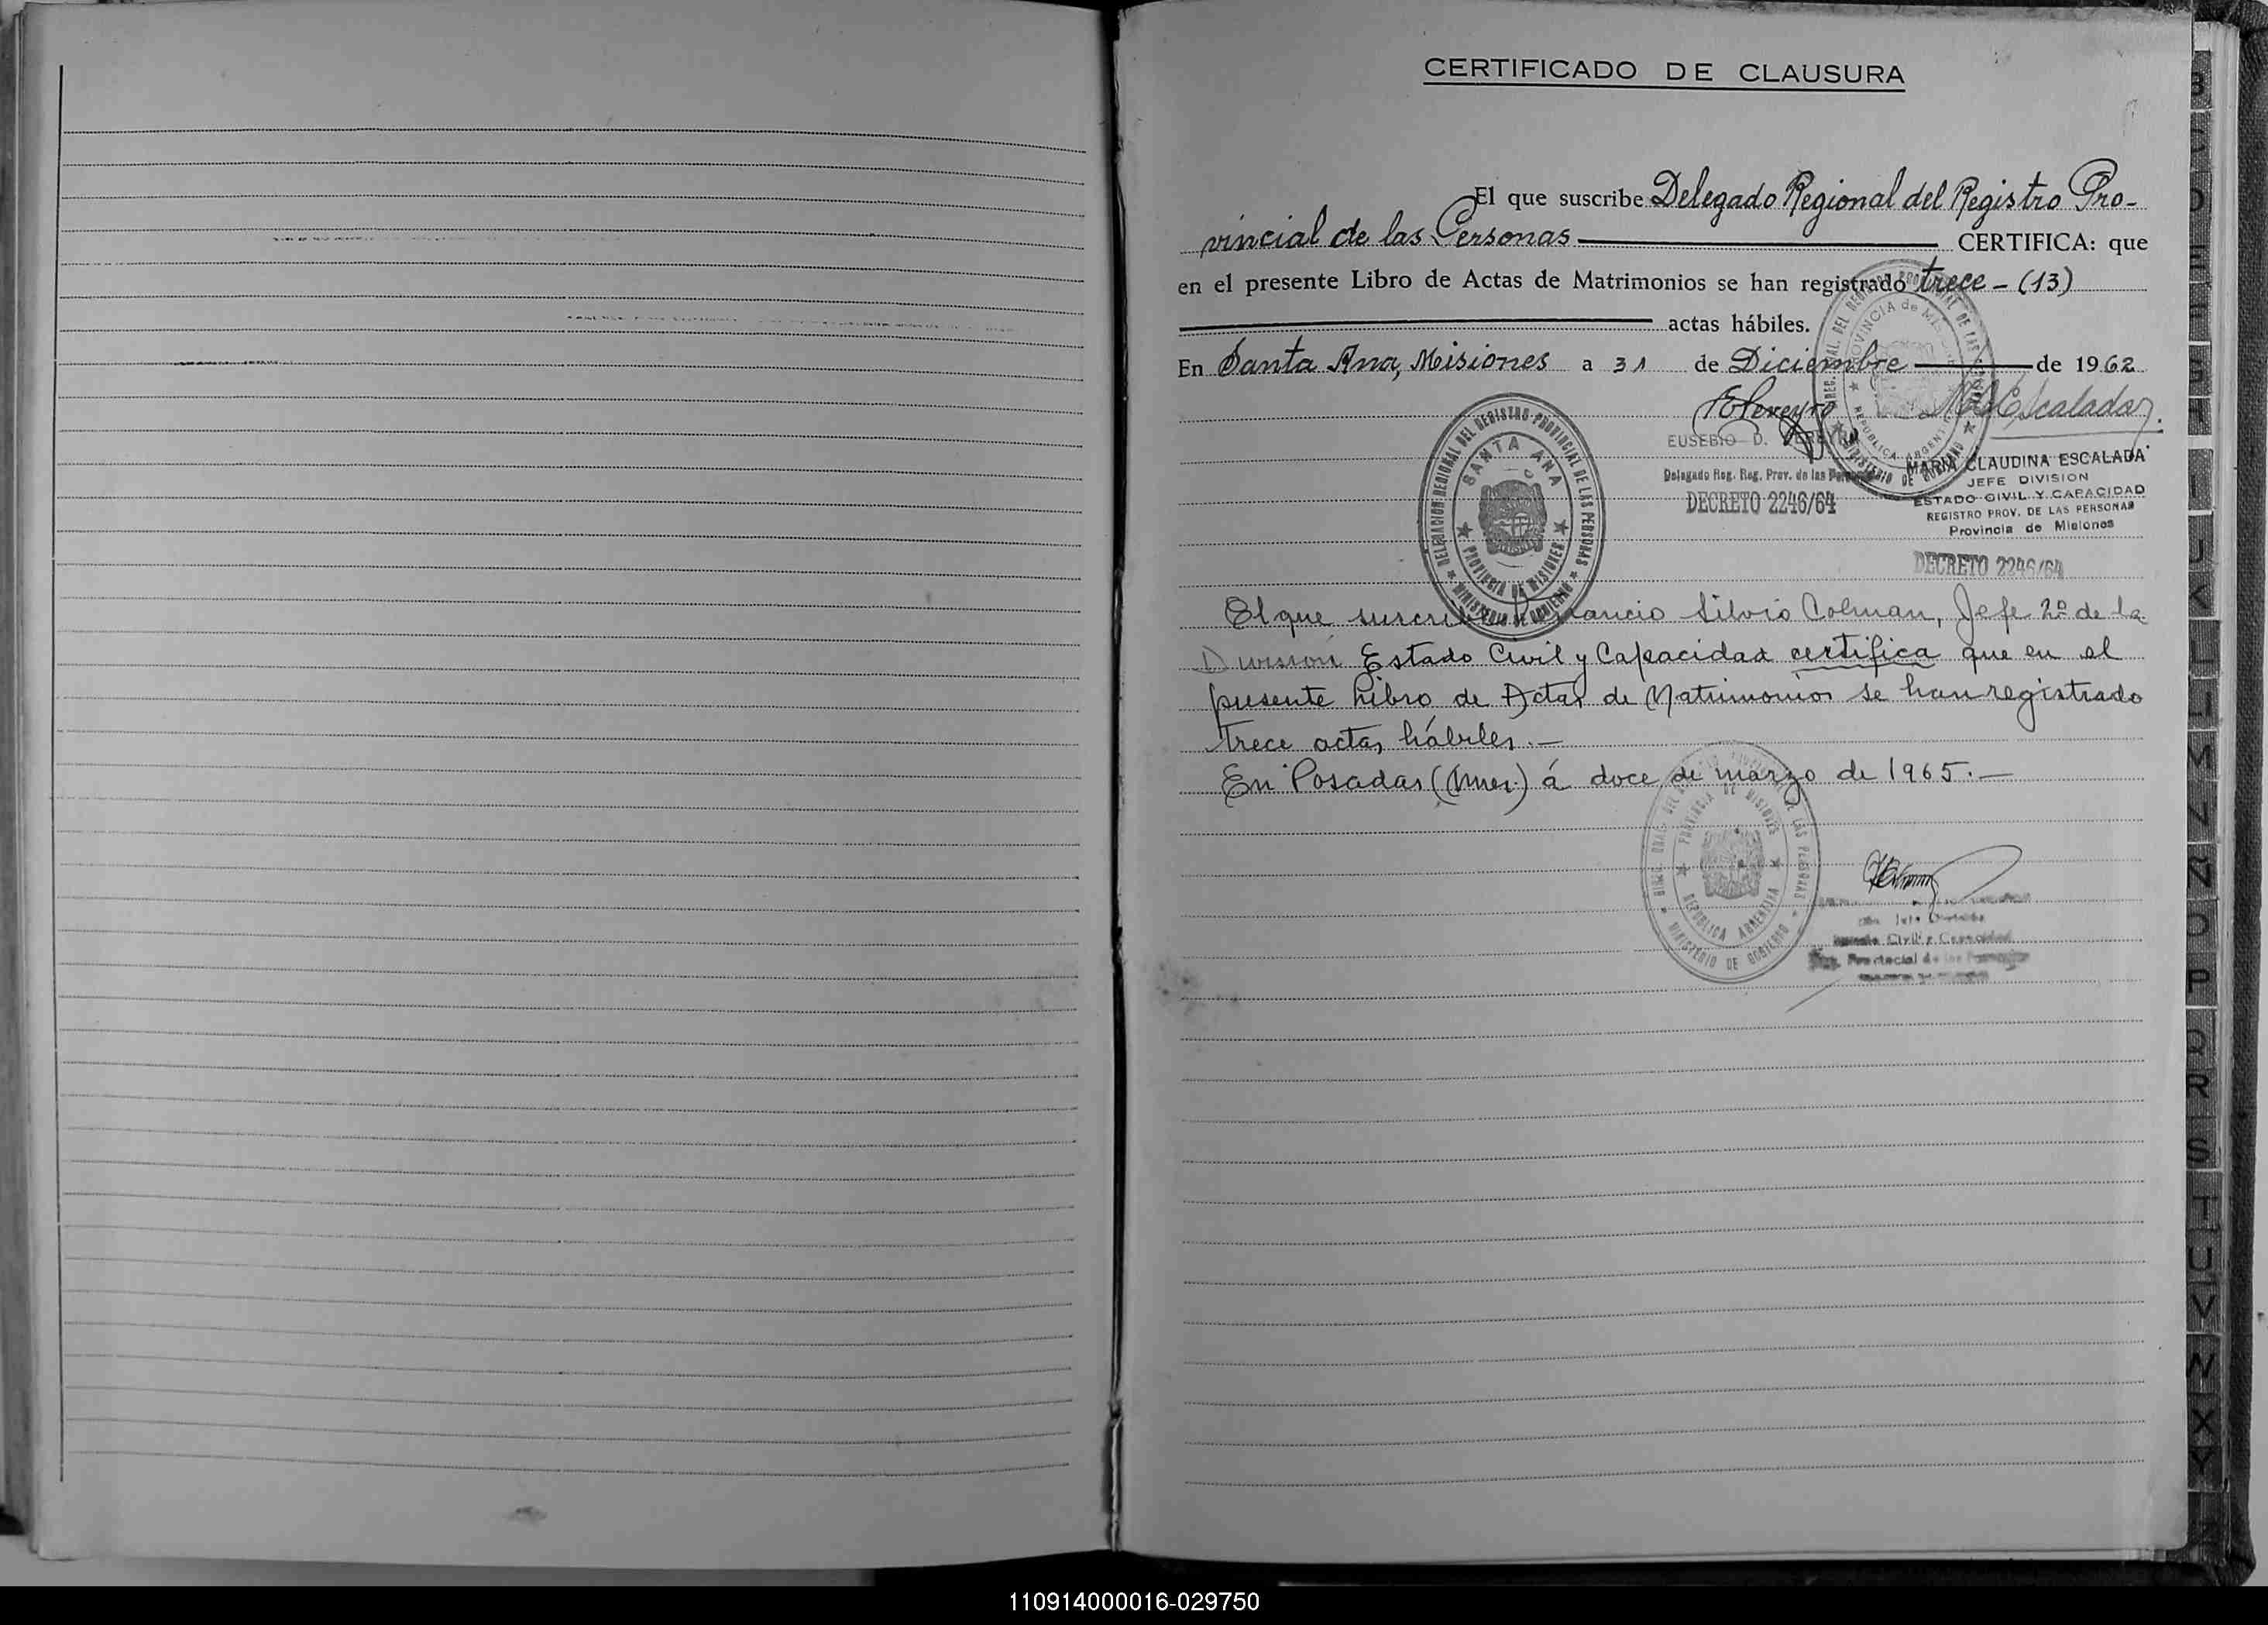 CERTIFICADO DE CLAUSURA
El que suscribe Delegado Regional del Registro Pro-
vincial de las Personas CERTIFICA: que
en el presente Libro de Actas de Matrimonios se han registrado trece - (13)
actas hábiles.
En Santa Ana, Misiones a 31 de Diciembre de 1962
EUSEBIO D. PEREYRA
Delegado Reg. Reg. Prov. de las Personas
DECRETO 2246/64
DELEGACION REGIONAL DEL REGISTRO PROVINCIAL DE LAS PERSONAS
SANTA ANA
PROVINCIA DE MISIONES
MINISTERIO DE GOBIERNO
PROVINCIA de MISIONES
REPUBLICA ARGENTINA
MINISTERIO DE GOBIERNO
M C Escalada
MARIA CLAUDINA ESCALADA
JEFE DIVISION
ESTADO CIVIL Y CAPACIDAD
REGISTRO PROV. DE LAS PERSONAS
Provincia de Misiones
DECRETO 2246/64
El que suscribe Silvio Colman, Jefe 2º de la
Division Estado Civil y Capacidad certifica que en el
presente Libro de Actas de Matrimonios se han registrado
trece actas hábiles.-
En Posadas (Mnes.) á doce de marzo de 1965.-
PROVINCIA DE MISIONES
REPUBLICA ARGENTINA
MINISTERIO DE GOBIERNO
Civil y Capacidad
Provincial de las Personas
B
C
D
E
F
G
H
I
J
K
L
M
N
O
P
Q
R
S
T
U
V
W
X
Y
110914000016-029750